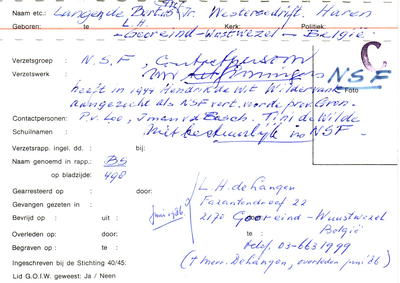 Naam etc.: Langende Bertus, Tr. Westersedrift. Haren
Geboren: te L.H. Kerk: Politiek:
-Gooreind-Wustwezel - België
Verzetsgroep : N.S.F, Contactpersoon
C.
Verzetswerk : voor
N.S.F
Foto
heeft in 1944 Hendrik de Wit Wildervank
aangezocht als NSF vert. voor de prov. Gron.
Contactpersonen: P.v. Loo, Iman v.d. Bosch. Tini de Wilde
Schuilnaam : Niet bestuurlijk in NSF.
Verzetsrapp. ingel. dd. : bij:
Naam genoemd in rapp.: BS
op bladzijde: 490
Gearresteerd op : door:
L.H. de Langen
Gevangen gezeten in : juni 1986.
Fazantendreef 22
Bevrijd op : uit : door:
2170 Gooreind-Wuustwezel
België
Overleden op: door: te :
Begraven op : te :
telef. 03-6631999
(† mevr. DeLangen, overleden juni '86)
Ingeschreven bij de Stichting 40/45:
Lid G.O.I.W. geweest: Ja / Neen